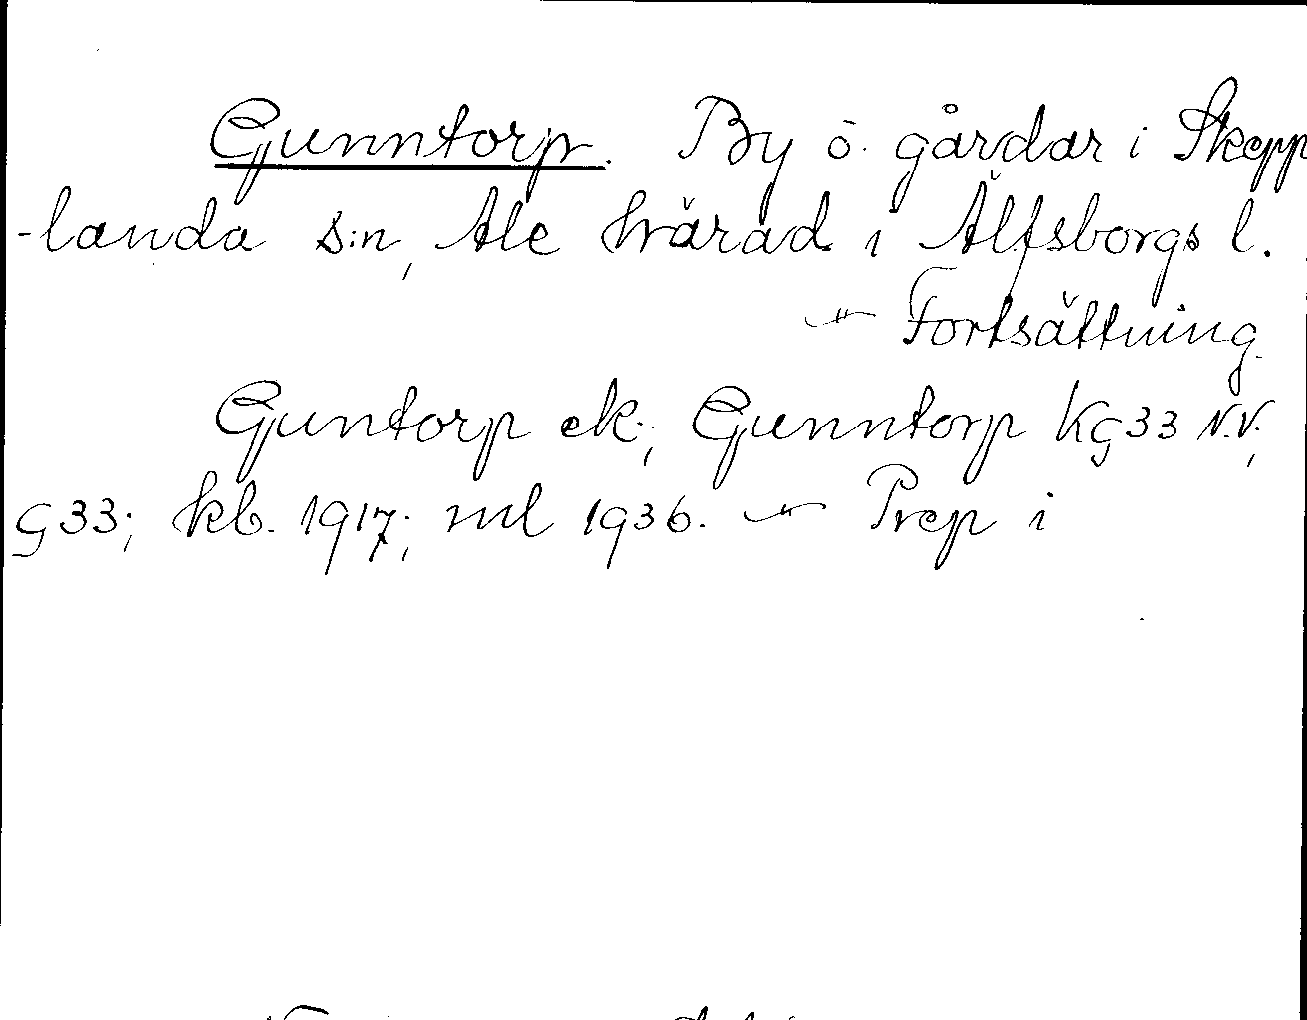 Gunntorp. By ö. gårdar i Skepp
-landa s:n, Ale härad i Älfsborgs l.
–"– Fortsättning.
Guntorp ek.; Gunntorp KG33 N.V.;
G33; kb. 1917; ml 1936. –"– Prep i